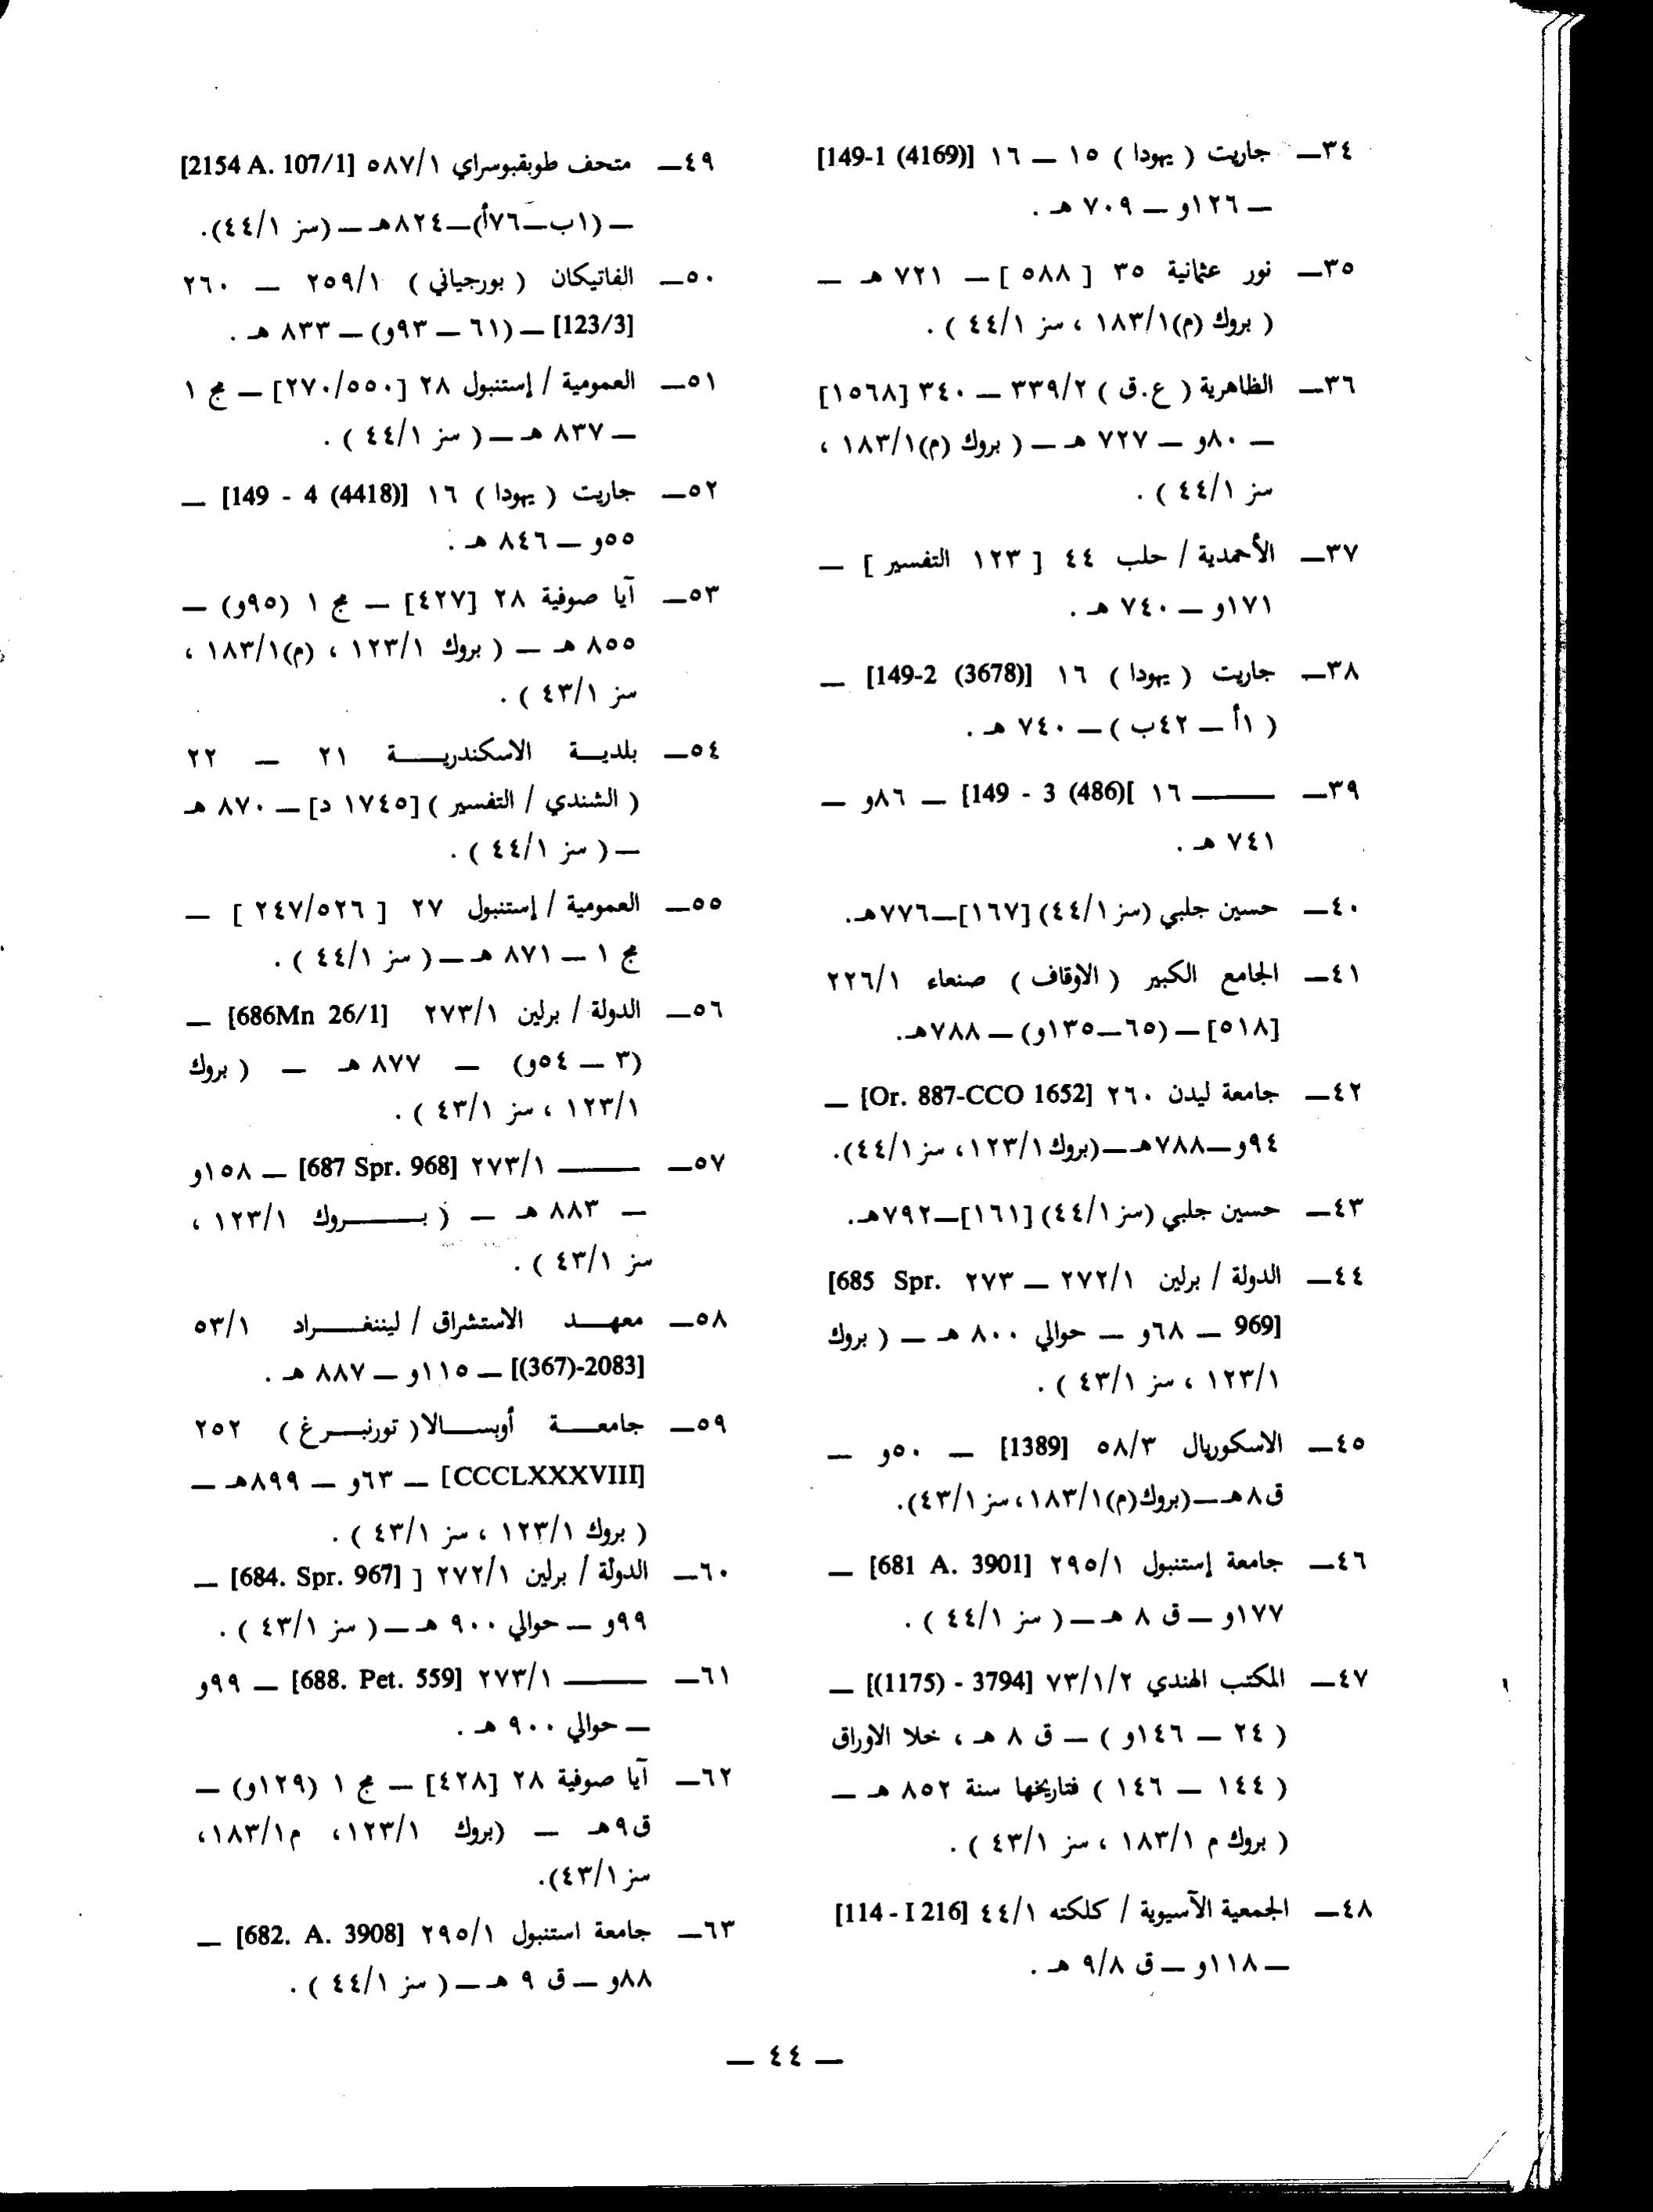 ٣٤ــ جاريت ( يهودا ) ١٥ ــ ١٦ [149-1 (4169)]
ــ ١٢٦و ــ ٧٠٩ هـ .
٣٥ــ نور عثمانية ٣٥ [ ٥٨٨ ] ــ ٧٢١ هـ ــ
( بروك (م)١٨٣/١ ، سز ٤٤/١ ) .
٣٦ــ الظاهرية ( ع.ق ) ٣٣٩/٢ ــ ٣٤٠ [١٥٦٨]
ــ ٨٠و ــ ٧٢٧ هـ ــ ( بروك (م)١٨٣/١ ،
سز ٤٤/١ ) .
٣٧ــ الأحمدية / حلب ٤٤ [ ١٢٣ التفسير ] ــ
١٧١و ــ ٧٤٠ هـ .
٣٨ــ جاريت ( يهودا ) ١٦ [149-2 (3678)] ــ
( ١أ ــ ٤٢ب ) ــ ٧٤٠ هـ .
٣٩ــ ــــــــ ١٦ [149 - 3 (486)] ــ ٨٦و ــ
٧٤١ هـ .
٤٠ــ حسين جلبي (سز ٤٤/١) [١٦٧]ــ٧٧٦هـ.
٤١ــ الجامع الكبير ( الاوقاف ) صنعاء ٢٢٦/١
[٥١٨] ــ (٦٥ــ١٣٥و) ــ ٧٨٨هـ.
٤٢ــ جامعة ليدن ٢٦٠ [Or. 887-CCO 1652] ــ
٩٤و ــ٧٨٨هــــ(بروك ١٢٣/١، سز ٤٤/١).
٤٣ــ حسين جلبي (سز ٤٤/١) [١٦١]ــ٧٩٢هـ.
٤٤ــ الدولة / برلين ٢٧٢/١ ــ ٢٧٣ [685 Spr.
969] ــ ٦٨و ــ حوالي ٨٠٠ هـ ــ ( بروك
١٢٣/١ ، سز ٤٣/١ ) .
٤٥ــ الاسكوريال ٥٨/٣ [1389] ــ ٥٠و ــ
ق٨هــــ(بروك(م)١٨٣/١، سز ٤٣/١).
٤٦ــ جامعة إستنبول ٢٩٥/١ [681 A. 3901] ــ
١٧٧و ــ ق ٨ هـ ــ ( سز ٤٤/١ ) .
٤٧ــ المكتب الهندي ٧٣/١/٢ [(1175) - 3794] ــ
( ٢٤ ــ ١٤٦و ) ــ ق ٨ هـ ، خلا الاوراق
( ١٤٤ ــ ١٤٦ ) فتاريخها سنة ٨٥٢ هـ ــ
( بروك م ١٨٣/١ ، سز ٤٣/١ ) .
٤٨ــ الجمعية الآسيوية / كلكته ٤٤/١ [114 - I 216]
ــ ١١٨و ــ ق ٩/٨ هـ .
٤٩ــ متحف طوبقبوسراي ٥٨٧/١ [2154 A. 107/1]
ــ (١ب ــ٧٦أ)ــ٨٢٤هـ ــ (سز ٤٤/١).
٥٠ــ الفاتيكان ( بورجياني ) ٢٥٩/١ ــ ٢٦٠
[123/3] ــ (٦١ ــ ٩٣و) ــ ٨٣٣ هـ .
٥١ــ العمومية / إستنبول ٢٨ [٢٧٠/٥٥٠] ــ مج ١
ــ ٨٣٧ هـ ــ ( سز ٤٤/١ ) .
٥٢ــ جاريت ( يهودا ) ١٦ [149 - 4 (4418)] ــ
٥٥و ــ ٨٤٦ هـ .
٥٣ــ آيا صوفية ٢٨ [٤٢٧] ــ مج ١ (٩٥و) ــ
٨٥٥ هـ ــ ( بروك ١٢٣/١ ، (م)١٨٣/١ ،
سز ٤٣/١ ) .
٥٤ــ بلديـة الاسكندريـة ٢١ ــ ٢٢
( الشندي / التفسير ) [١٧٤٥ د] ــ ٨٧٠ هـ
ــ ( سز ٤٤/١ ) .
٥٥ــ العمومية / إستنبول ٢٧ [ ٢٤٧/٥٢٦ ] ــ
مج ١ ــ ٨٧١ هـ ــ ( سز ٤٤/١ ) .
٥٦ــ الدولة / برلين ٢٧٣/١ [686Mn 26/1] ــ
(٣ ــ ٥٤و) ــ ٨٧٧ هـ ــ ( بروك
١٢٣/١ ، سز ٤٣/١ ) .
٥٧ــ ــــــــ ٢٧٣/١ [687 Spr. 968] ــ ١٥٨و
ــ ٨٨٣ هـ ــ ( بـــروك ١٢٣/١ ،
سز ٤٣/١ ) .
٥٨ــ معهـد الاستشراق / ليننغـراد ٥٣/١
[(367)-2083] ــ ١١٥و ــ ٨٨٧ هـ .
٥٩ــ جامعـة أوبسـالا ( تورنبـرغ ) ٢٥٢
[CCCLXXXVIII] ــ ٦٣و ــ ٨٩٩هـ ــ
( بروك ١٢٣/١ ، سز ٤٣/١ ) .
٦٠ــ الدولة / برلين ٢٧٢/١ [ [684. Spr. 967] ــ
٩٩و ــ حوالي ٩٠٠ هـ ــ ( سز ٤٣/١ ) .
٦١ــ ــــــــ ٢٧٣/١ [688. Pet. 559] ــ ٩٩و
ــ حوالي ٩٠٠ هـ .
٦٢ــ آيا صوفية ٢٨ [٤٢٨] ــ مج ١ (١٢٩و) ــ
ق٩هـ ــ (بروك ١٢٣/١، م١٨٣/١،
سز ٤٣/١).
٦٣ــ جامعة استنبول ٢٩٥/١ [682. A. 3908] ــ
٨٨و ــ ق ٩ هـ ــ ( سز ٤٤/١ ) .
ــ ٤٤ ــ